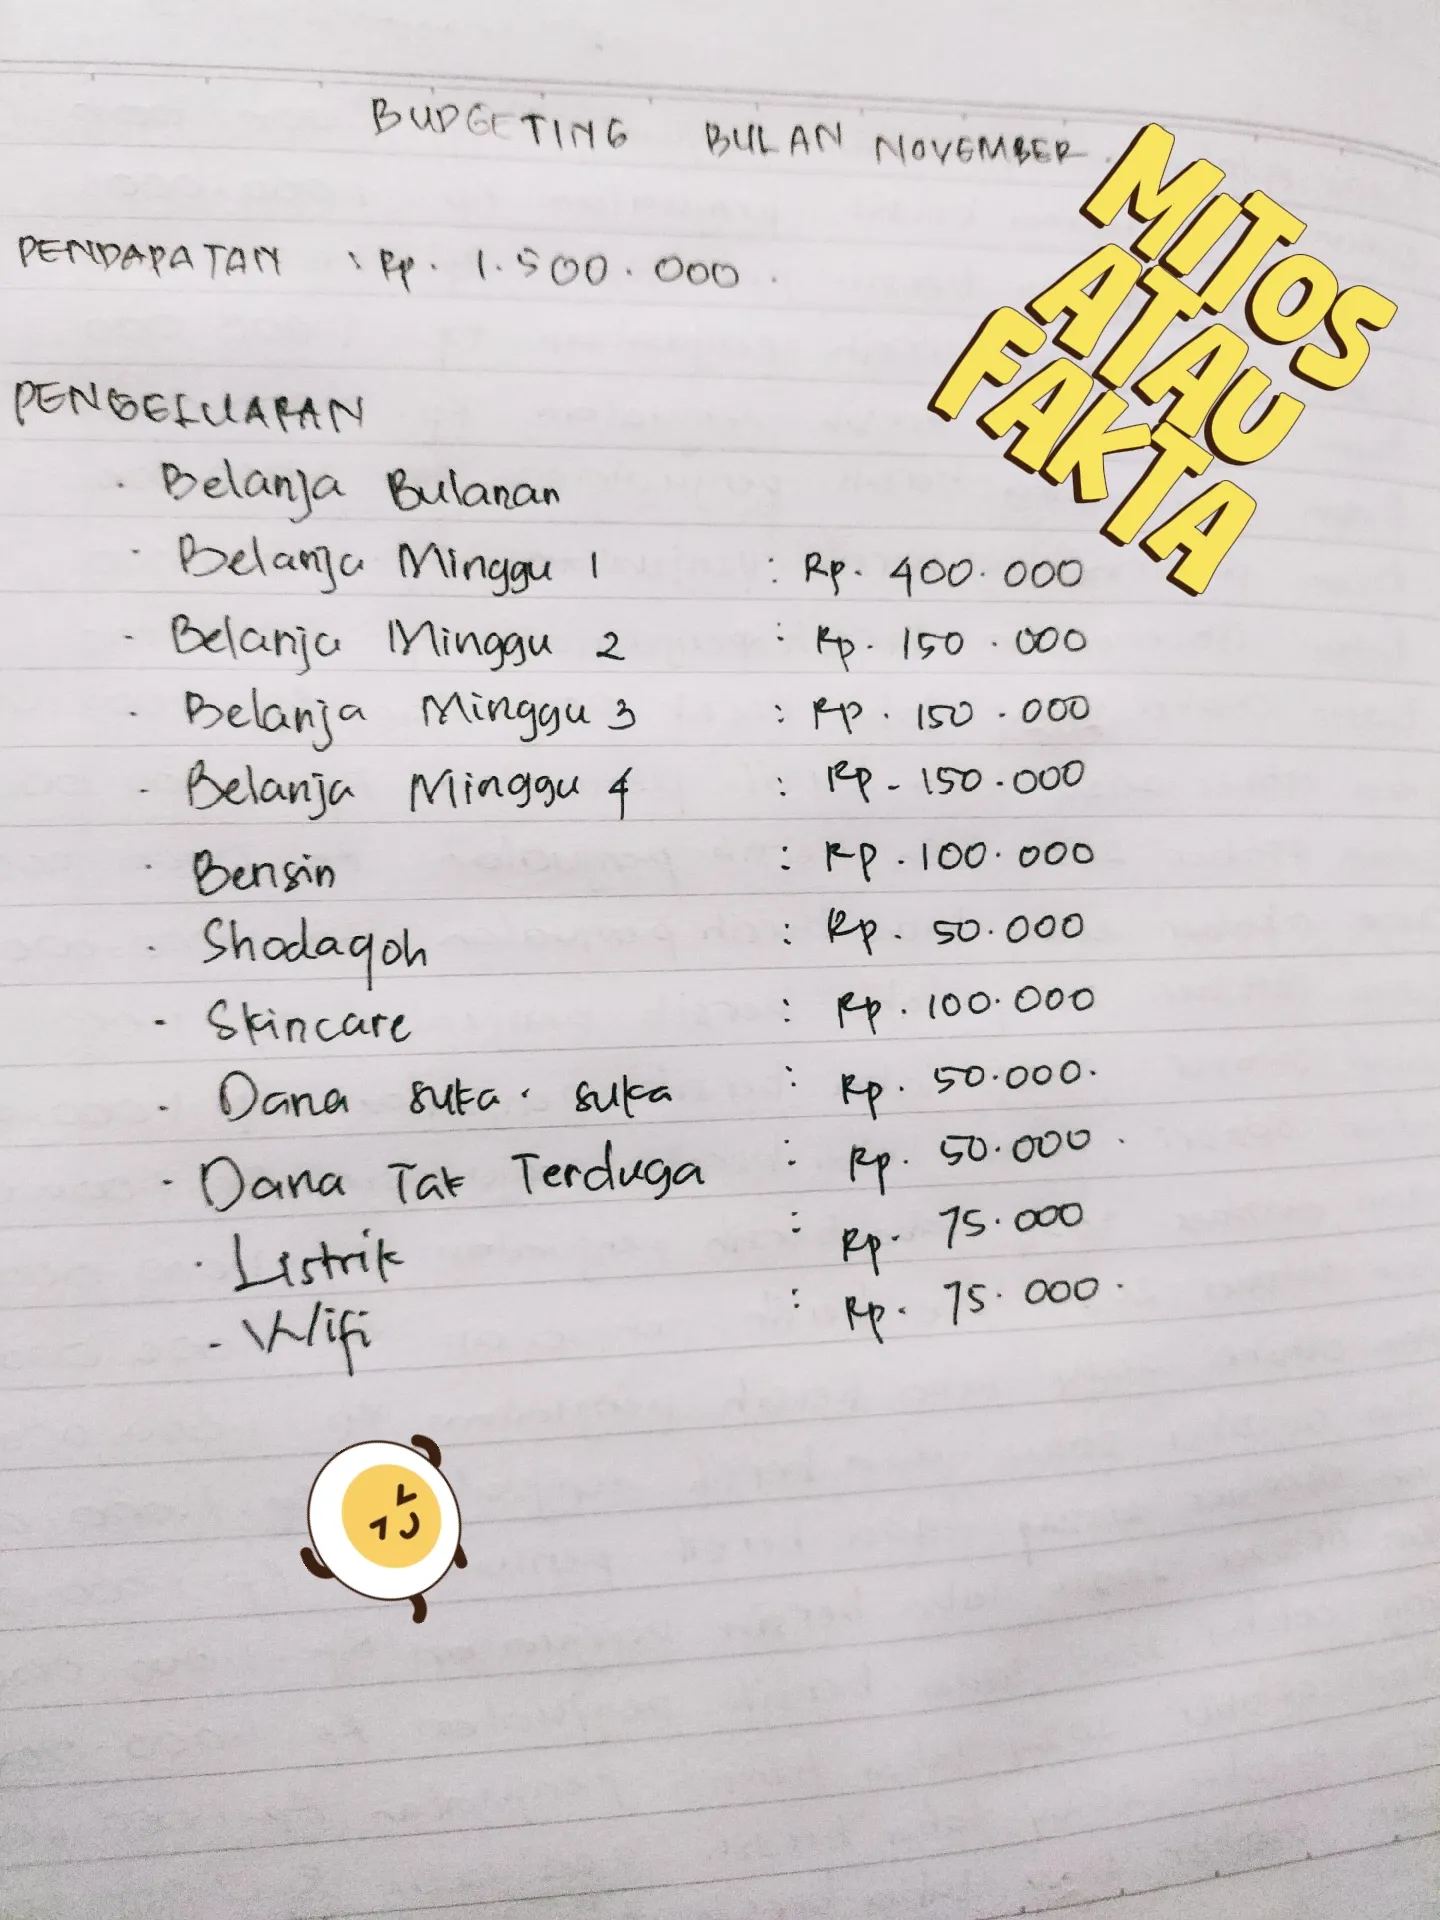 BUDGETING BULAN NOVEMBER.
MITOS
ATAU
FAKTA
PENDAPATAN : Rp. 1.500.000.
PENGELUARAN
. Belanja Bulanan
. Belanja Minggu 1 : Rp. 400.000
- Belanja Minggu 2 : Rp. 150.000
. Belanja Minggu 3 : Rp. 150.000
- Belanja Minggu 4 : Rp. 150.000
. Bensin : Rp. 100.000
. Shodaqoh : Rp. 50.000
- Skincare : Rp. 100.000
. Dana suka-suka : Rp. 50.000.
. Dana Tak Terduga : Rp. 50.000.
. Listrik : Rp. 75.000
- Wifi : Rp. 75.000.